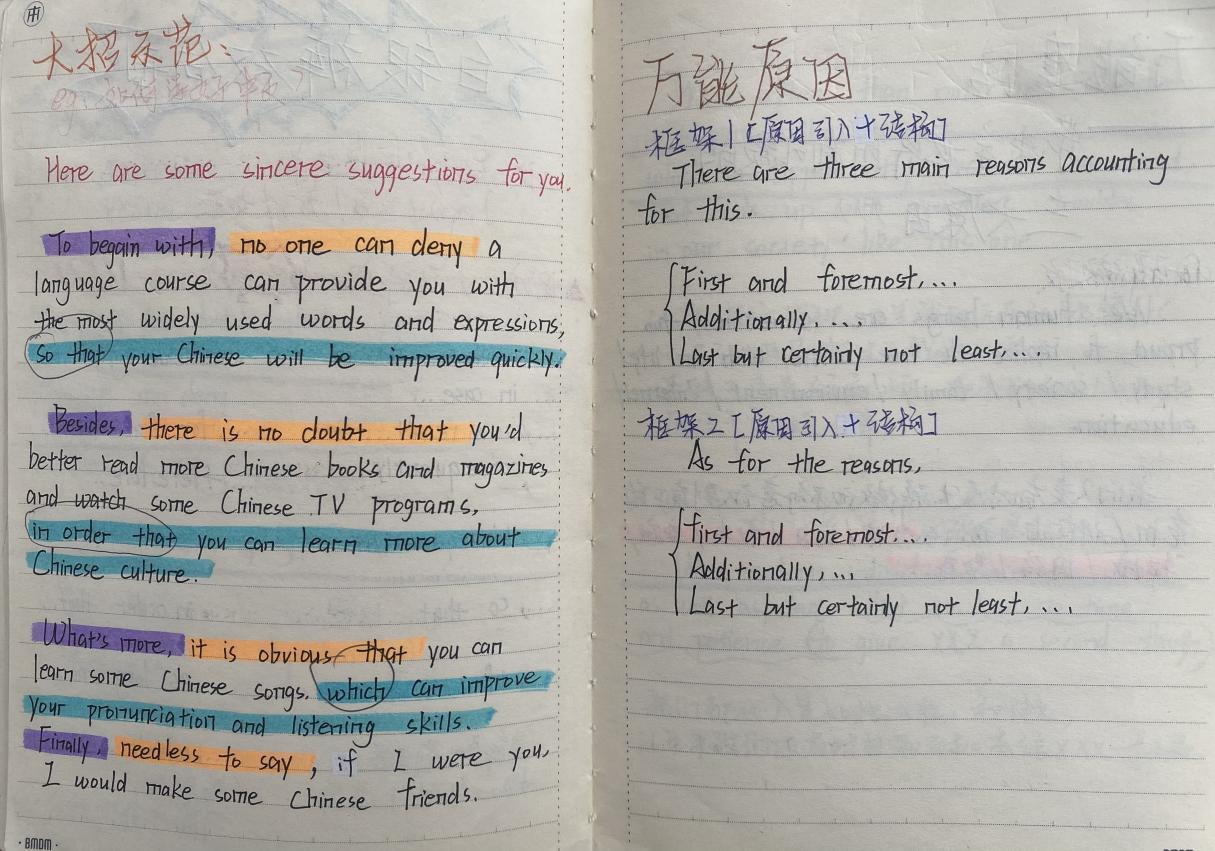 大招示范：
eg. 如何学好中文？
Here are some sincere suggestions for you.
To begain with, no one can deny a
language course can provide you with
the most widely used words and expressions,
so that your Chinese will be improved quickly.
Besides, there is no doubt that you'd
better read more Chinese books and magazines
and watch some Chinese TV programs,
in order that you can learn more about
Chinese culture.
What's more, it is obvious that you can
learn some Chinese songs. which can improve
your pronunciation and listening skills.
Finally, needless to say, if I were you,
I would make some Chinese friends.
·BMDM·
万能原因
框架1 [原因引入+结构]
There are three main reasons accounting
for this.
First and foremost,...
Additionally, ...
Last but certainly not least,...
框架2 [原因引入+结构]
As for the reasons,
First and foremost...
Additionally, ...
Last but certainly not least, ...